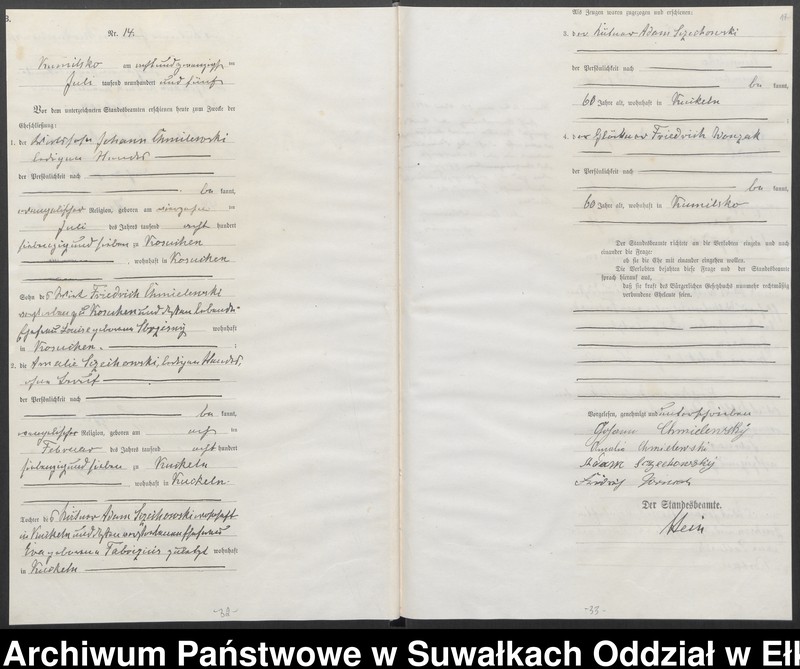 B.
Nr. 14.
Kumilsko am acht und zwanzigsten
Juli tausend neunhundert und fünf
Vor dem unterzeichneten Standesbeamten erschienen heute zum Zwecke der
Eheschließung:
1. der Wirtssohn Johann Chmilewski
ledigen Standes
der Persönlichkeit nach
be kannt,
evangelischer Religion, geboren am
Juli des Jahres tausend acht hundert
siebenzig und sieben zu Kosuchen
, wohnhaft in Kosuchen
Sohn des Wirt Friedrich Chmielewski
verstorben zu Kosuchen und dessen lebender
Ehefrau Louise geborene wohnhaft
in Kosuchen.
2. die Amalie Szechowski, ledigen Standes,
ohne Beruf
der Persönlichkeit nach
be kannt,
evangelischer Religion, geboren am acht
Februar des Jahres tausend acht hundert
siebenzig und sieben zu Kuckeln
, wohnhaft in Kuckeln
Tochter des Kätner Adam Szechowski wohnhaft
in Kuckeln und dessen verstorbenen Ehefrau
Eva geborene Fabrizius zuletzt wohnhaft
in Kuckeln
-32-
Als Zeugen waren zugezogen und erschienen:
3. der Kätner Adam Szechowski
der Persönlichkeit nach
be kannt,
60 Jahre alt, wohnhaft in Kuckeln
4. der Glöckner Friedrich Worgak
der Persönlichkeit nach
be kannt,
60 Jahre alt, wohnhaft in Kumilsko
Der Standesbeamte richtete an die Verlobten einzeln und nach
einander die Frage:
ob sie die Ehe mit einander eingehen wollen.
Die Verlobten bejahten diese Frage und der Standesbeamte
sprach hierauf aus,
daß sie kraft des Bürgerlichen Gesetzbuchs nunmehr rechtmäßig
verbundene Eheleute seien.
Vorgelesen, genehmigt und unterschrieben
Johann Chmielewsky
Amalie Chmielewski
Adam Szechowsky
Fridrich
Der Standesbeamte.
Hein
-33-
Archiwum Państwowe w Suwałkach Oddział w Eł